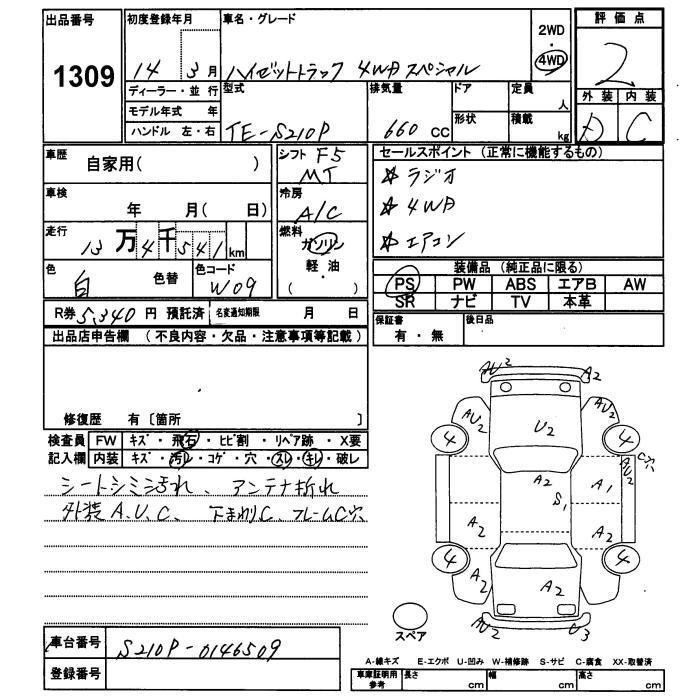 出品番号 初度登録年月 車名・グレード 2WD・4WD 評価点
1309 14 3月 ハイゼットトラック 4WD スペシャル 2
ディーラー・並行 型式 排気量 ドア 定員 人 外装 内装
モデル年式 年 形状 積載 kg D C
ハンドル 左・右 TE-S210P 660 CC
車歴 自家用( ) シフト F5 MT セールスポイント (正常に機能するもの)
☆ ラジオ
車検 年 月( 日) 冷房 A/C ☆ 4WD
走行 13万4千541km 燃料 ガソリン 軽・油 ( ) ☆ エアコン
色 白 色替 色コード W09 装備品 (純正品に限る)
PS PW ABS エアB AW
SR ナビ TV 本革
R券 5,340 円 預託済 名変通知期限 月 日 保証書 有・無 後日品
出品店申告欄 (不良内容・欠品・注意事項等記載)
修復歴 有〔箇所 〕
検査員 FW キズ・飛石・ヒビ割・リペア跡・X要
記入欄 内装 キズ・汚レ・コゲ・穴・スレ・キレ・破レ
シートシミ汚れ、アンテナ折れ
外装A.U.C、下まわりC、フレームC穴
AU2 A2
AU2 U2 AU2
4 4
A2 S1 A1 AU2 C穴
A2 A2
4 4
A2 A2 A2
AU2 U3
スペア
車台番号 S210P-0146509
登録番号
A-線キズ E-エクボ U-凹み W-補修跡 S-サビ C-腐食 XX-取替済
車庫証明用参考 長さ cm 幅 cm 高さ cm